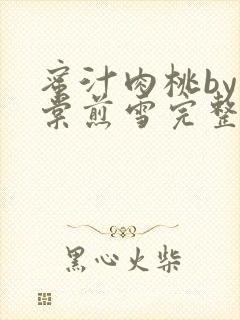 蜜汁肉桃by
棠煎雪完整
黑心火柴